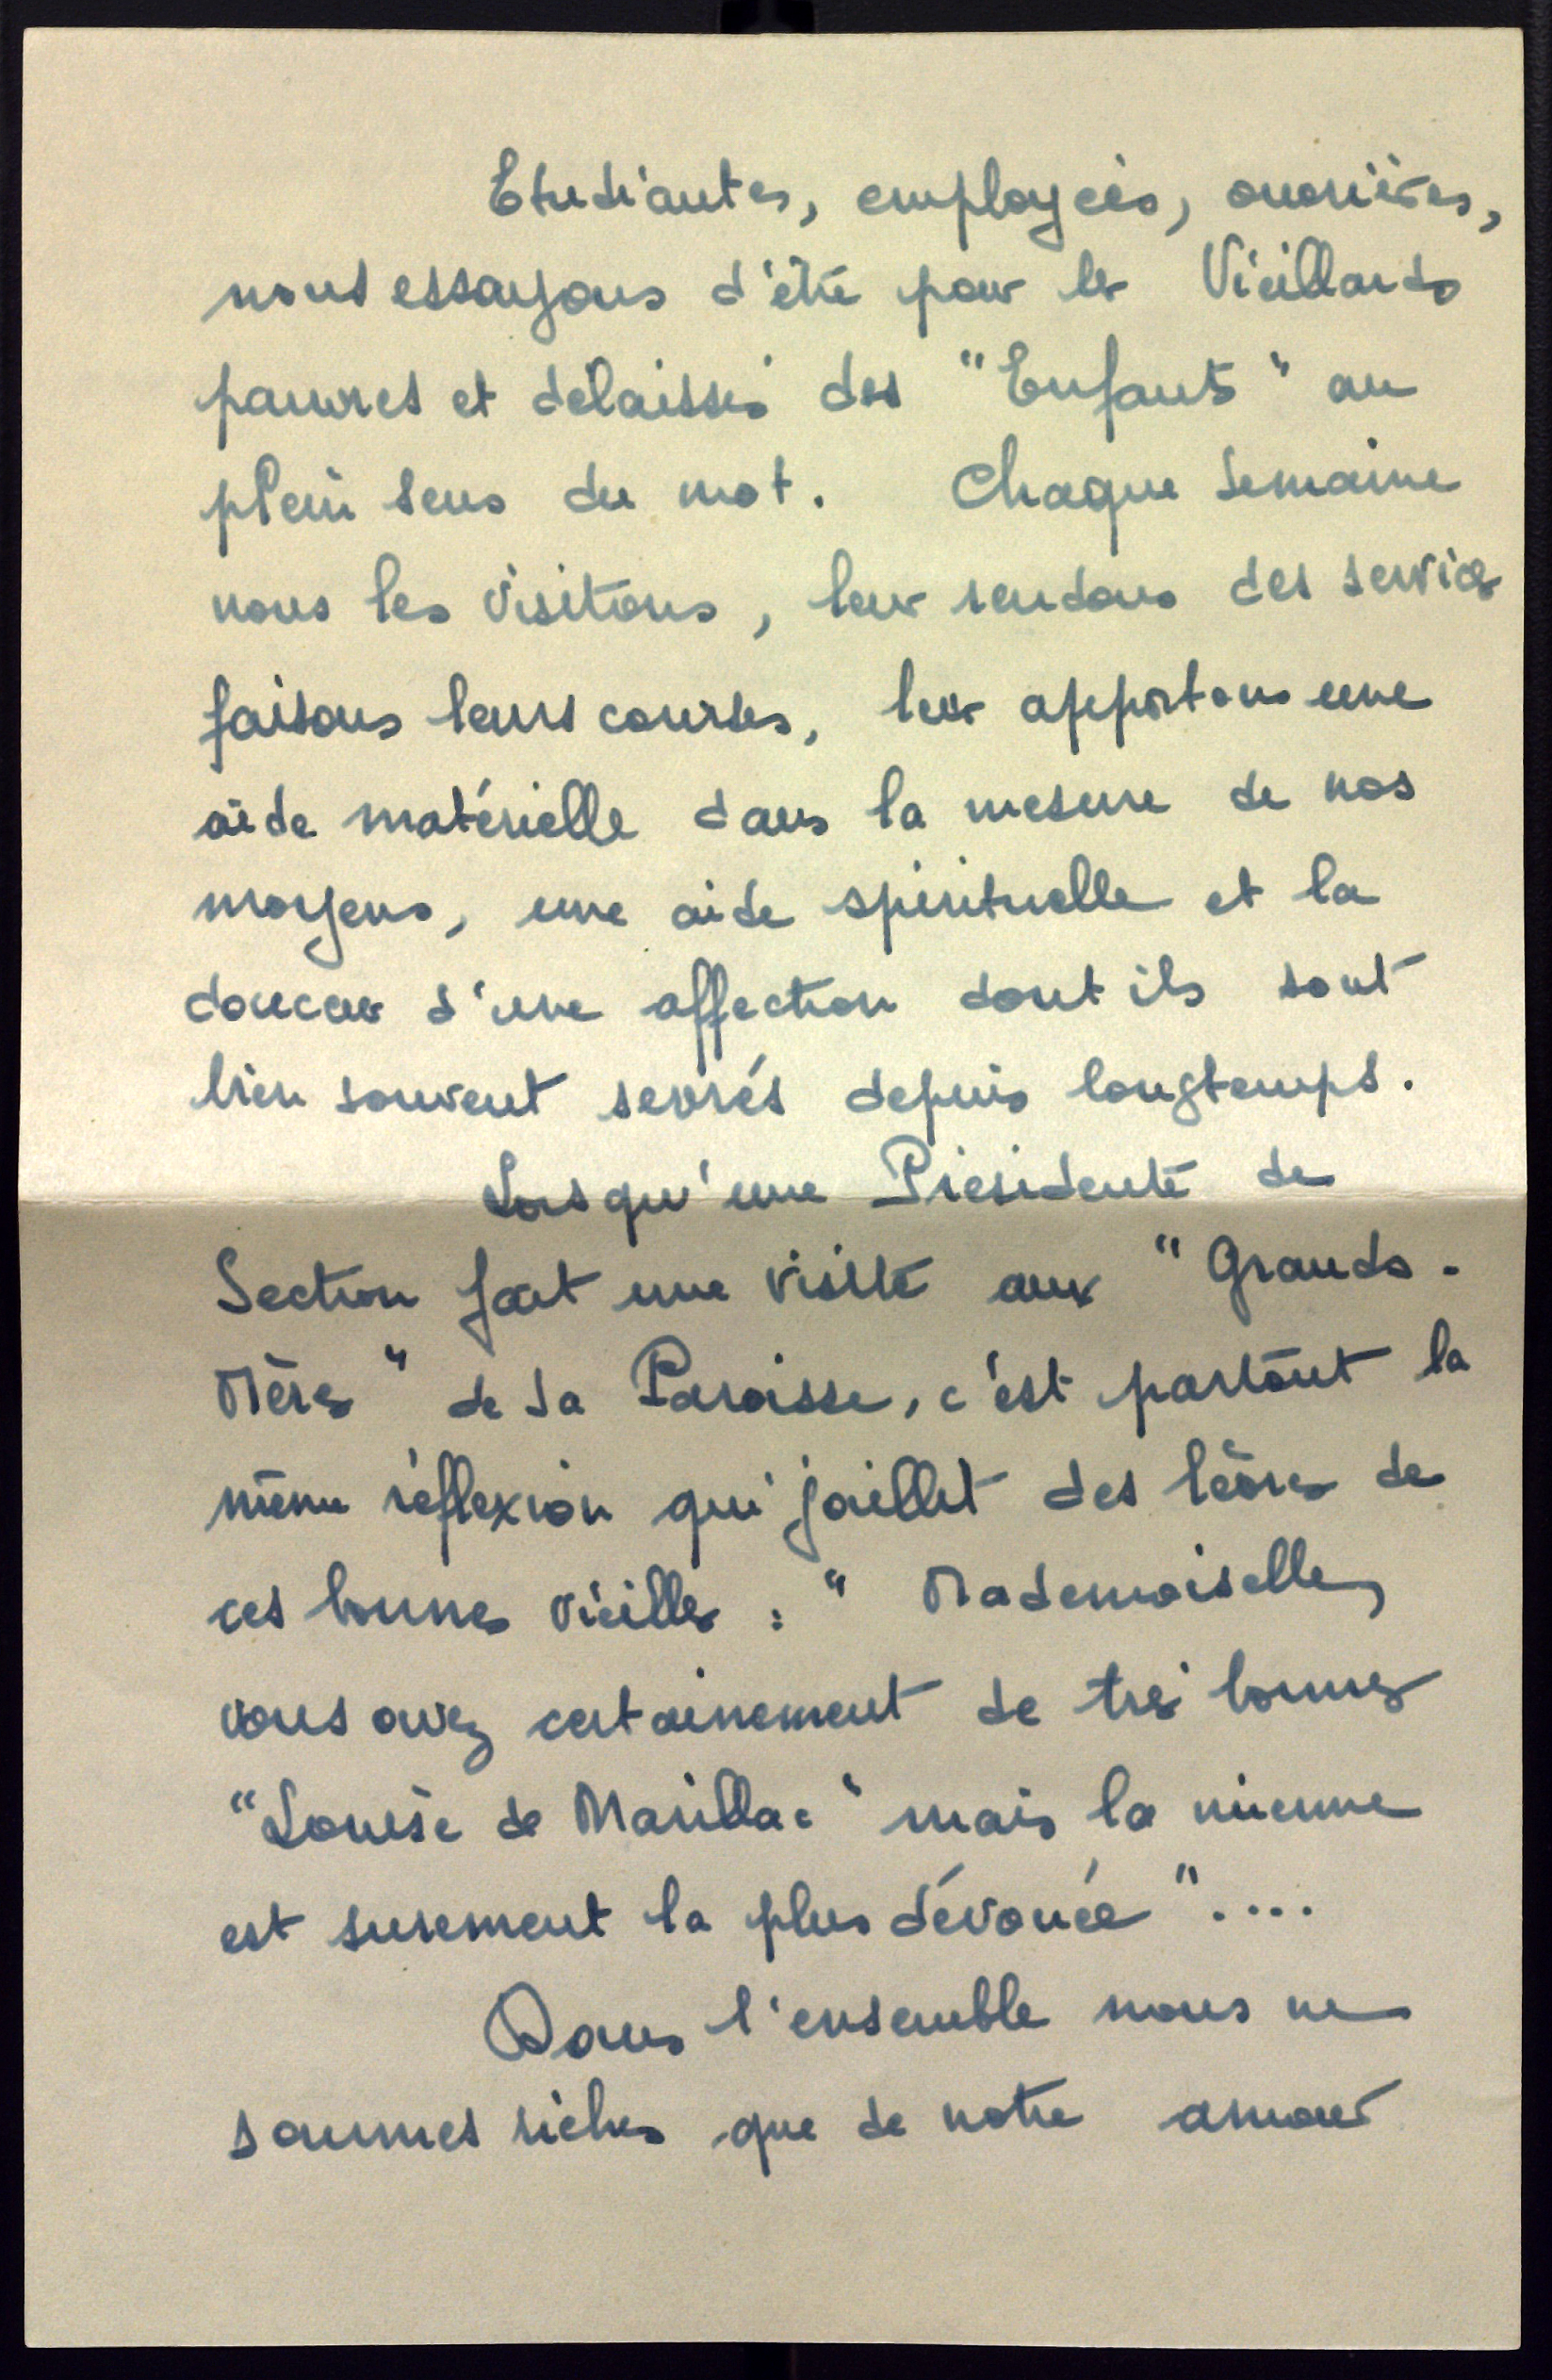 Etudiantes, employées, ouvrières,
nous essayons d'être pour les Vieillards
pauvres et délaissés des "Enfants" au
plein sens du mot. Chaque semaine
nous les visitons, leur rendons des services
faisons leurs courses, leur apportons une
aide matérielle dans la mesure de nos
moyens, une aide spirituelle et la
douceur d'une affection dont ils sont
bien souvent sevrés depuis longtemps.
Lorsqu'une Présidente de
Section fait une visite aux "Grands-
Mères" de sa Paroisse, c'est partout la
même réflexion qui jaillit des lèvres de
ces bonnes vieilles : "Mademoiselle,
vous avez certainement de très bonnes
"Louise de Marillac" mais la mienne
est surement la plus dévouée"....
Dans l'ensemble nous ne
sommes riches que de notre amour